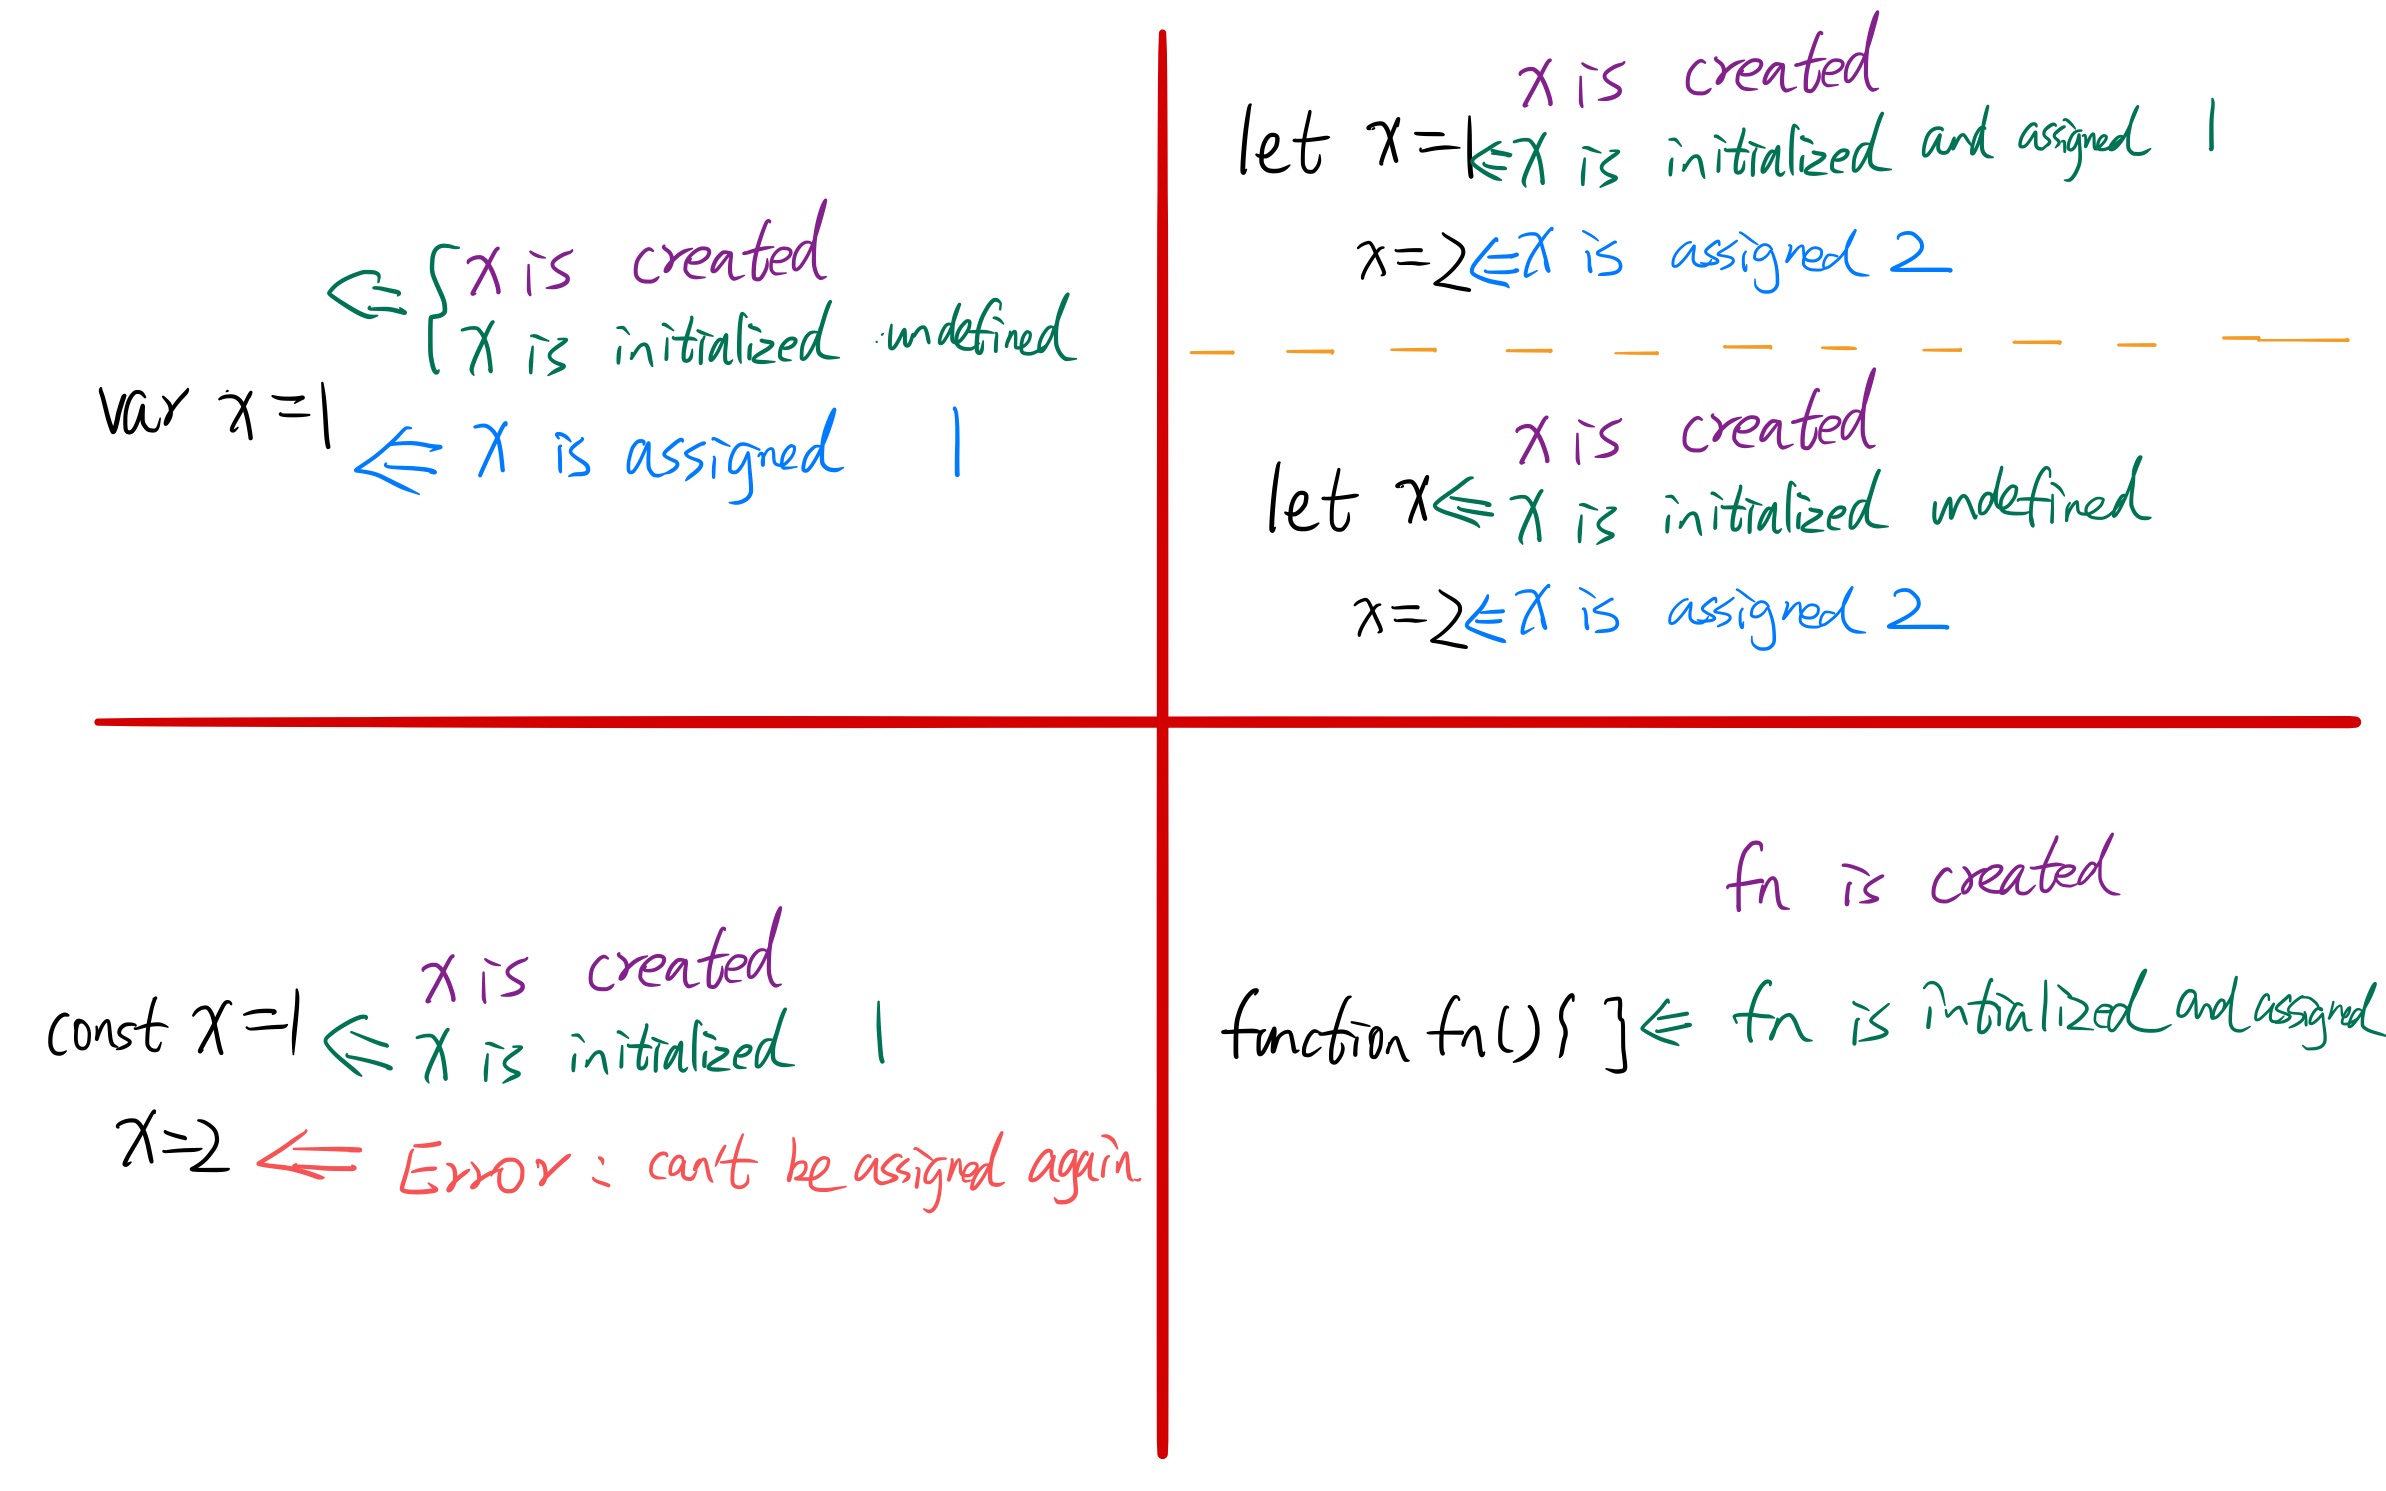 x is created
x is initialized undefined
var x=1
x is assigned 1
x is created
let x=1
x is initialized and assigned 1
x=2
x is assigned 2
x is created
let x
x is initialized undefined
x=2
x is assigned 2
x is created
const x=1
x is initialized 1
x=2
Error: can't be assigned again
fn is created
function fn(){}
fn is initialized and assigned